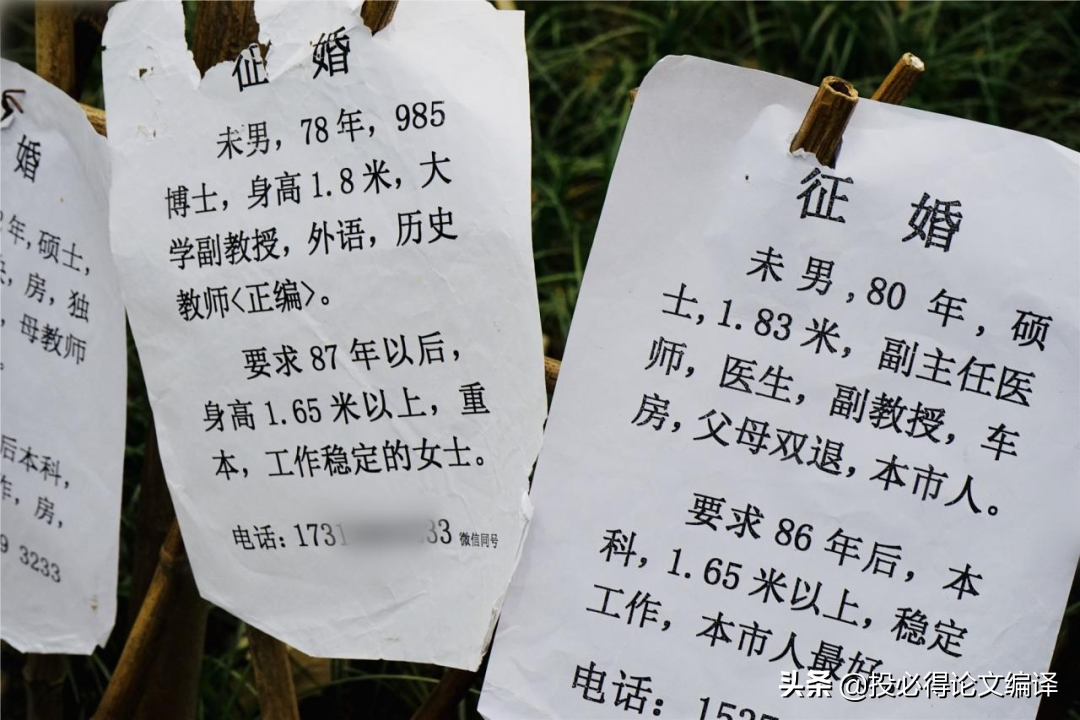 婚
年,硕士,
房,独
母教师
后本科,
房,
3233
征 婚
未男,78年,985
博士,身高1.8米,大
学副教授,外语,历史
教师<正编>。
要求87年以后,
身高1.65米以上,重
本,工作稳定的女士。
电话:1731 33 微信同号
征 婚
未男,80年,硕
士,1.83米,副主任医
师,医生,副教授,车
房,父母双退,本市人。
要求86年后,本
科,1.65米以上,稳定
工作,本市人最好
电话:
头条 @投必得论文编译